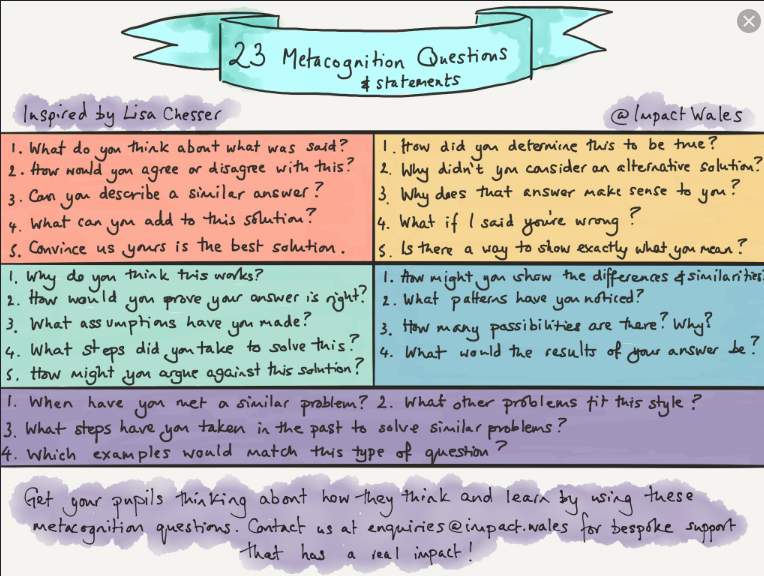 23 Metacognition Questions
& statements
Inspired by Lisa Chesser
@ImpactWales
1. What do you think about what was said?
2. How would you agree or disagree with this?
3. Can you describe a similar answer?
4. What can you add to this solution?
5. Convince us yours is the best solution.
1. How did you determine this to be true?
2. Why didn't you consider an alternative solution?
3. Why does that answer make sense to you?
4. What if I said you're wrong?
5. Is there a way to show exactly what you mean?
1. Why do you think this works?
2. How would you prove your answer is right?
3. What assumptions have you made?
4. What steps did you take to solve this?
5. How might you argue against this solution?
1. How might you show the differences & similarities?
2. What patterns have you noticed?
3. How many possibilities are there? Why?
4. What would the results of your answer be?
1. When have you met a similar problem? 2. What other problems fit this style?
3. What steps have you taken in the past to solve similar problems?
4. Which examples would match this type of question?
Get your pupils thinking about how they think and learn by using these
metacognition questions. Contact us at enquiries@impact.wales for bespoke support
that has a real impact!